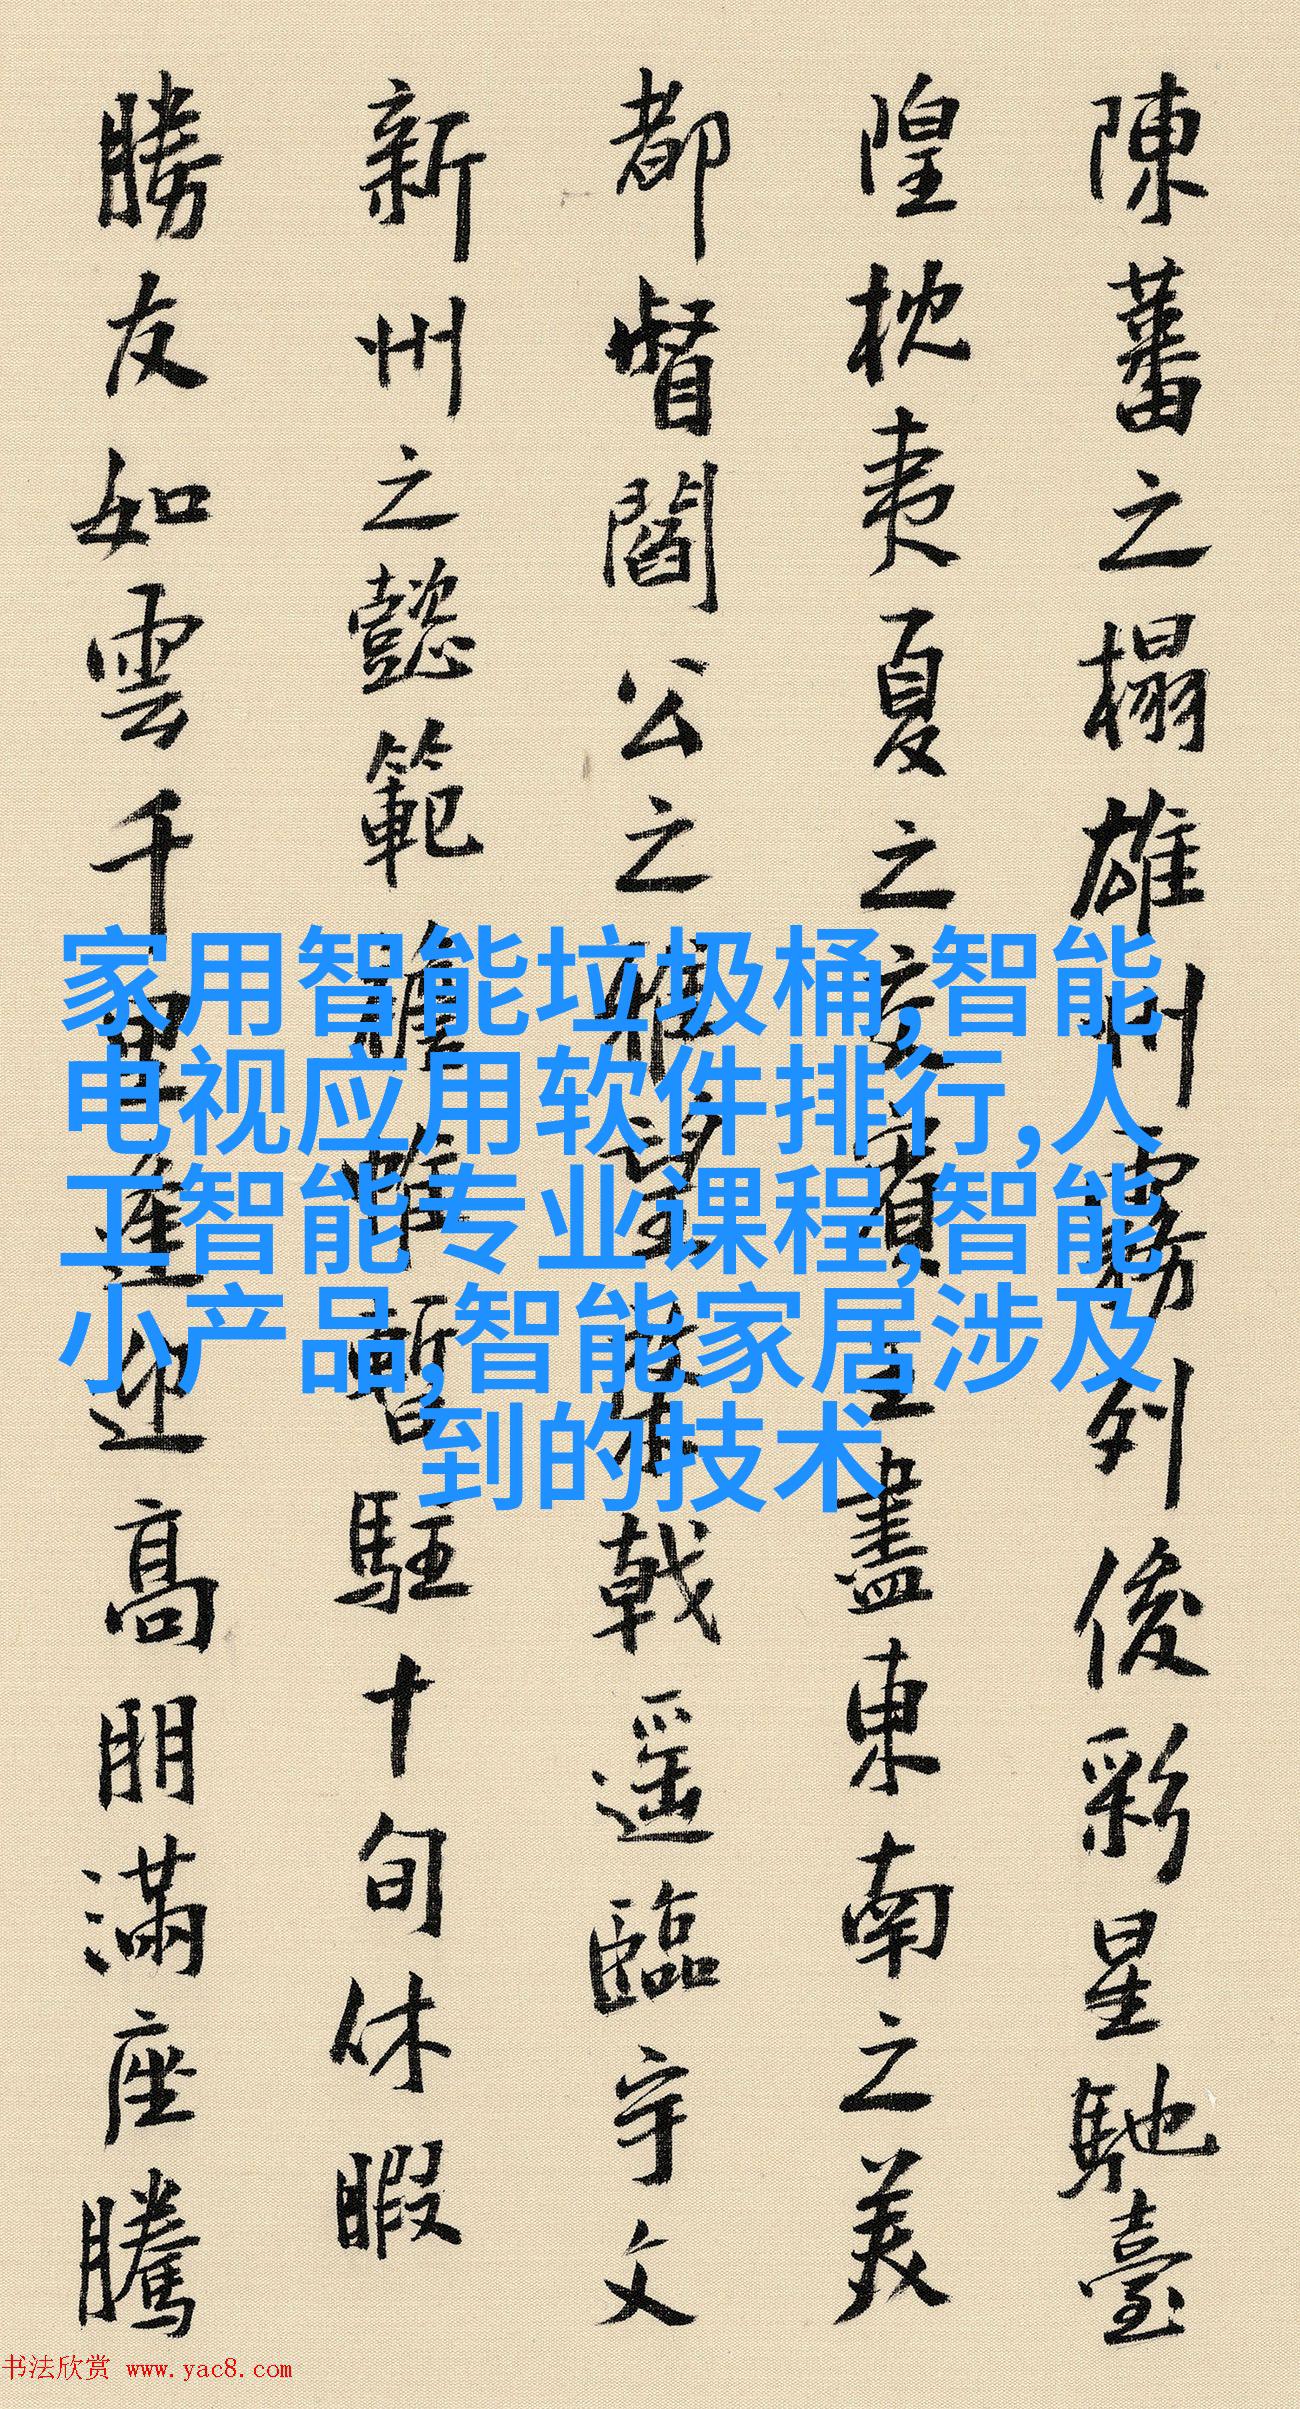 陳蕃之榻雄州霧列俊彩星馳臺
隍枕夷夏之交賓主盡東南之美
都督閻公之雅望棨戟遥臨宇文
新州之懿範襜帷暫駐十旬休暇
勝友如雲千里逢迎高朋滿座騰
家用智能垃圾桶,智能
电视应用软件排行,人
工智能专业课程,智能
小产品,智能家居涉及
到的技术
书法欣赏 www.yac8.com